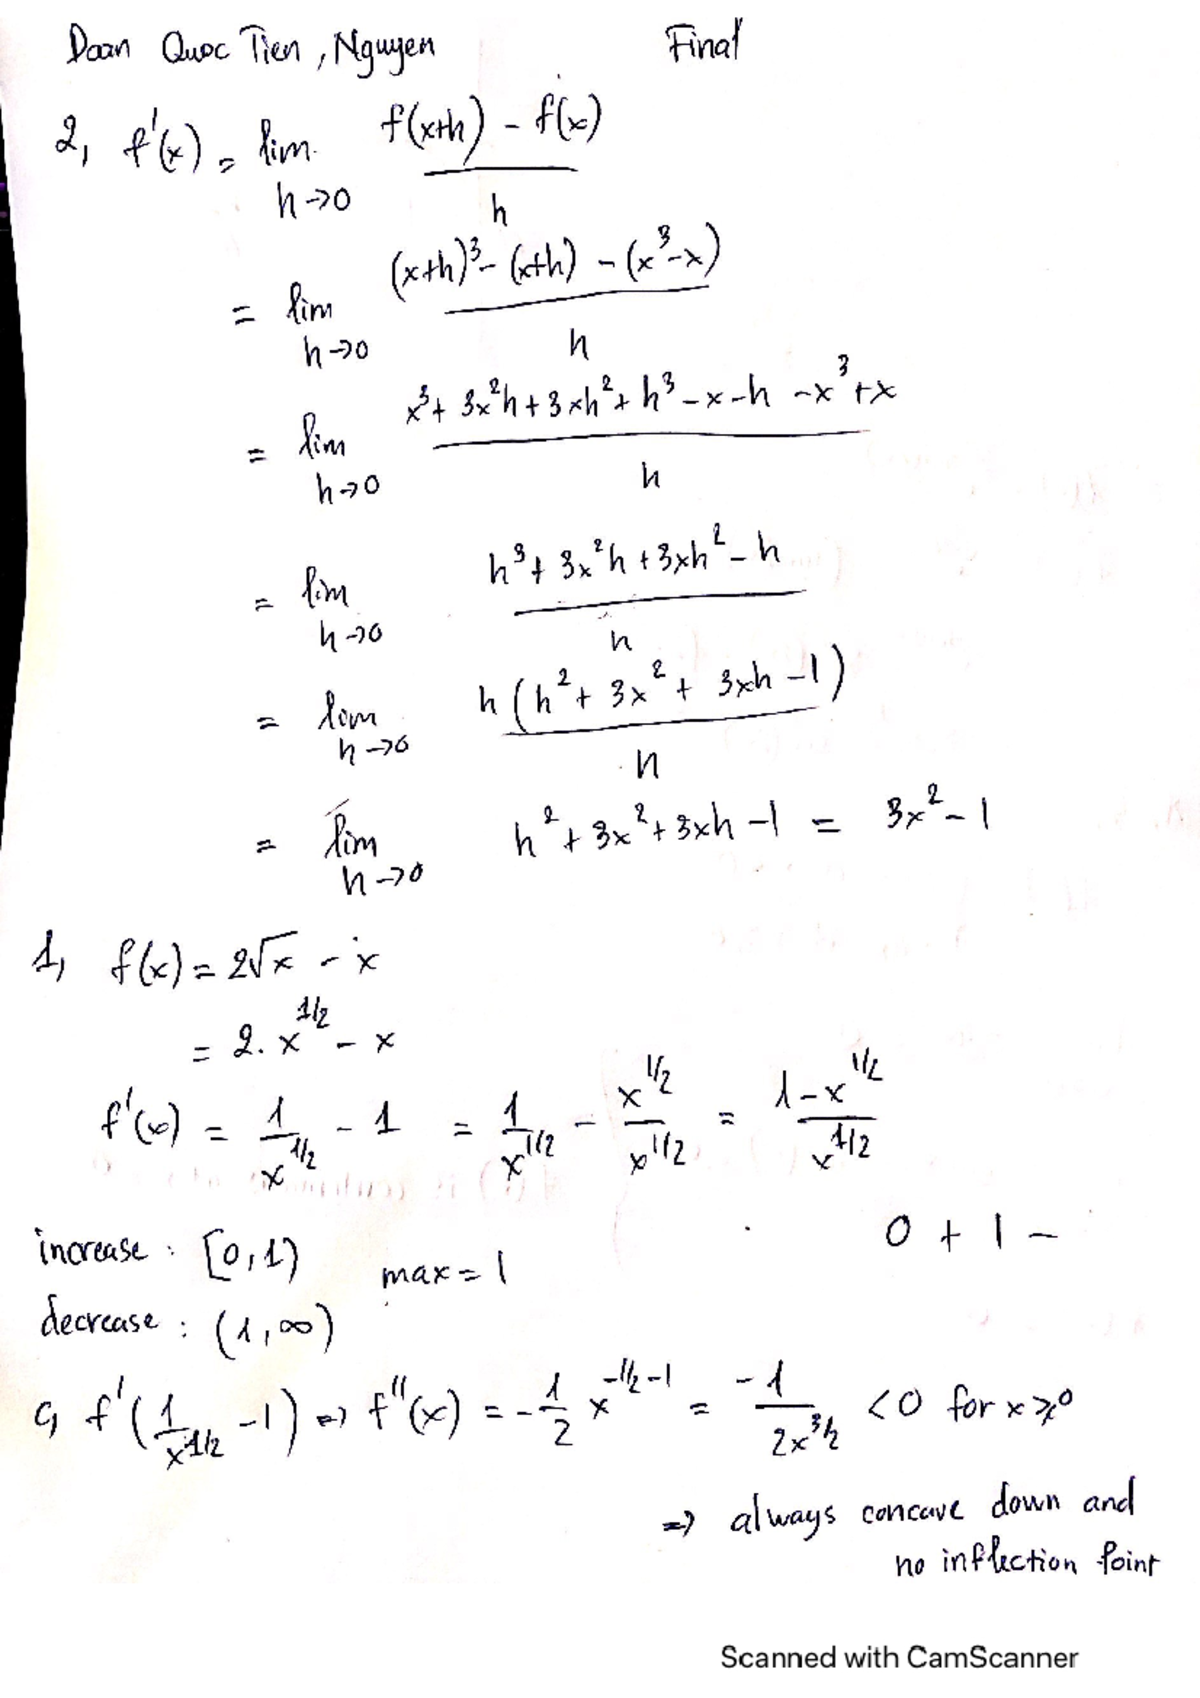 Doan Quoc Tien, Nguyen Final
2, f'(x) = lim h→0 f(x+h) - f(x) / h
= lim h→0 (x+h)³ - (x+h) - (x³-x) / h
= lim h→0 x³ + 3x²h + 3xh² + h³ - x - h - x³ + x / h
= lim h→0 h³ + 3x²h + 3xh² - h / h
= lim h→0 h(h² + 3x² + 3xh - 1) / h
= lim h→0 h² + 3x² + 3xh - 1 = 3x² - 1
1, f(x) = 2√x - x
= 2. x^1/2 - x
f'(x) = 1/x^1/2 - 1 = 1/x^1/2 - x^1/2/x^1/2 = 1-x^1/2 / x^1/2
0 + 1 -
increase : [0,1) max = 1
decrease : (1,∞)
c, f'(1/x^1/2 - 1) => f''(x) = -1/2 x^-1/2-1 = -1/2x^3/2 <0 for x≥0
=> always concave down and
no inflection point
Scanned with CamScanner